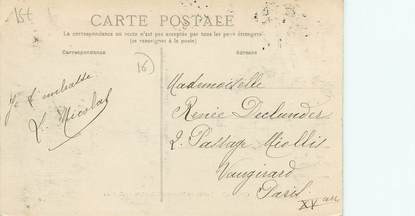 15+
CARTE POSTALE
La correspondance au recto n'est pas acceptée par tous les pays étrangers
(se renseigner à la poste)
Correspondance
Adresse
16
Je t'embrasse
L. Nicolas
Mademoiselle
Renée Declunder
2. Passage Miollis
Vaugirard
Paris
XV arr